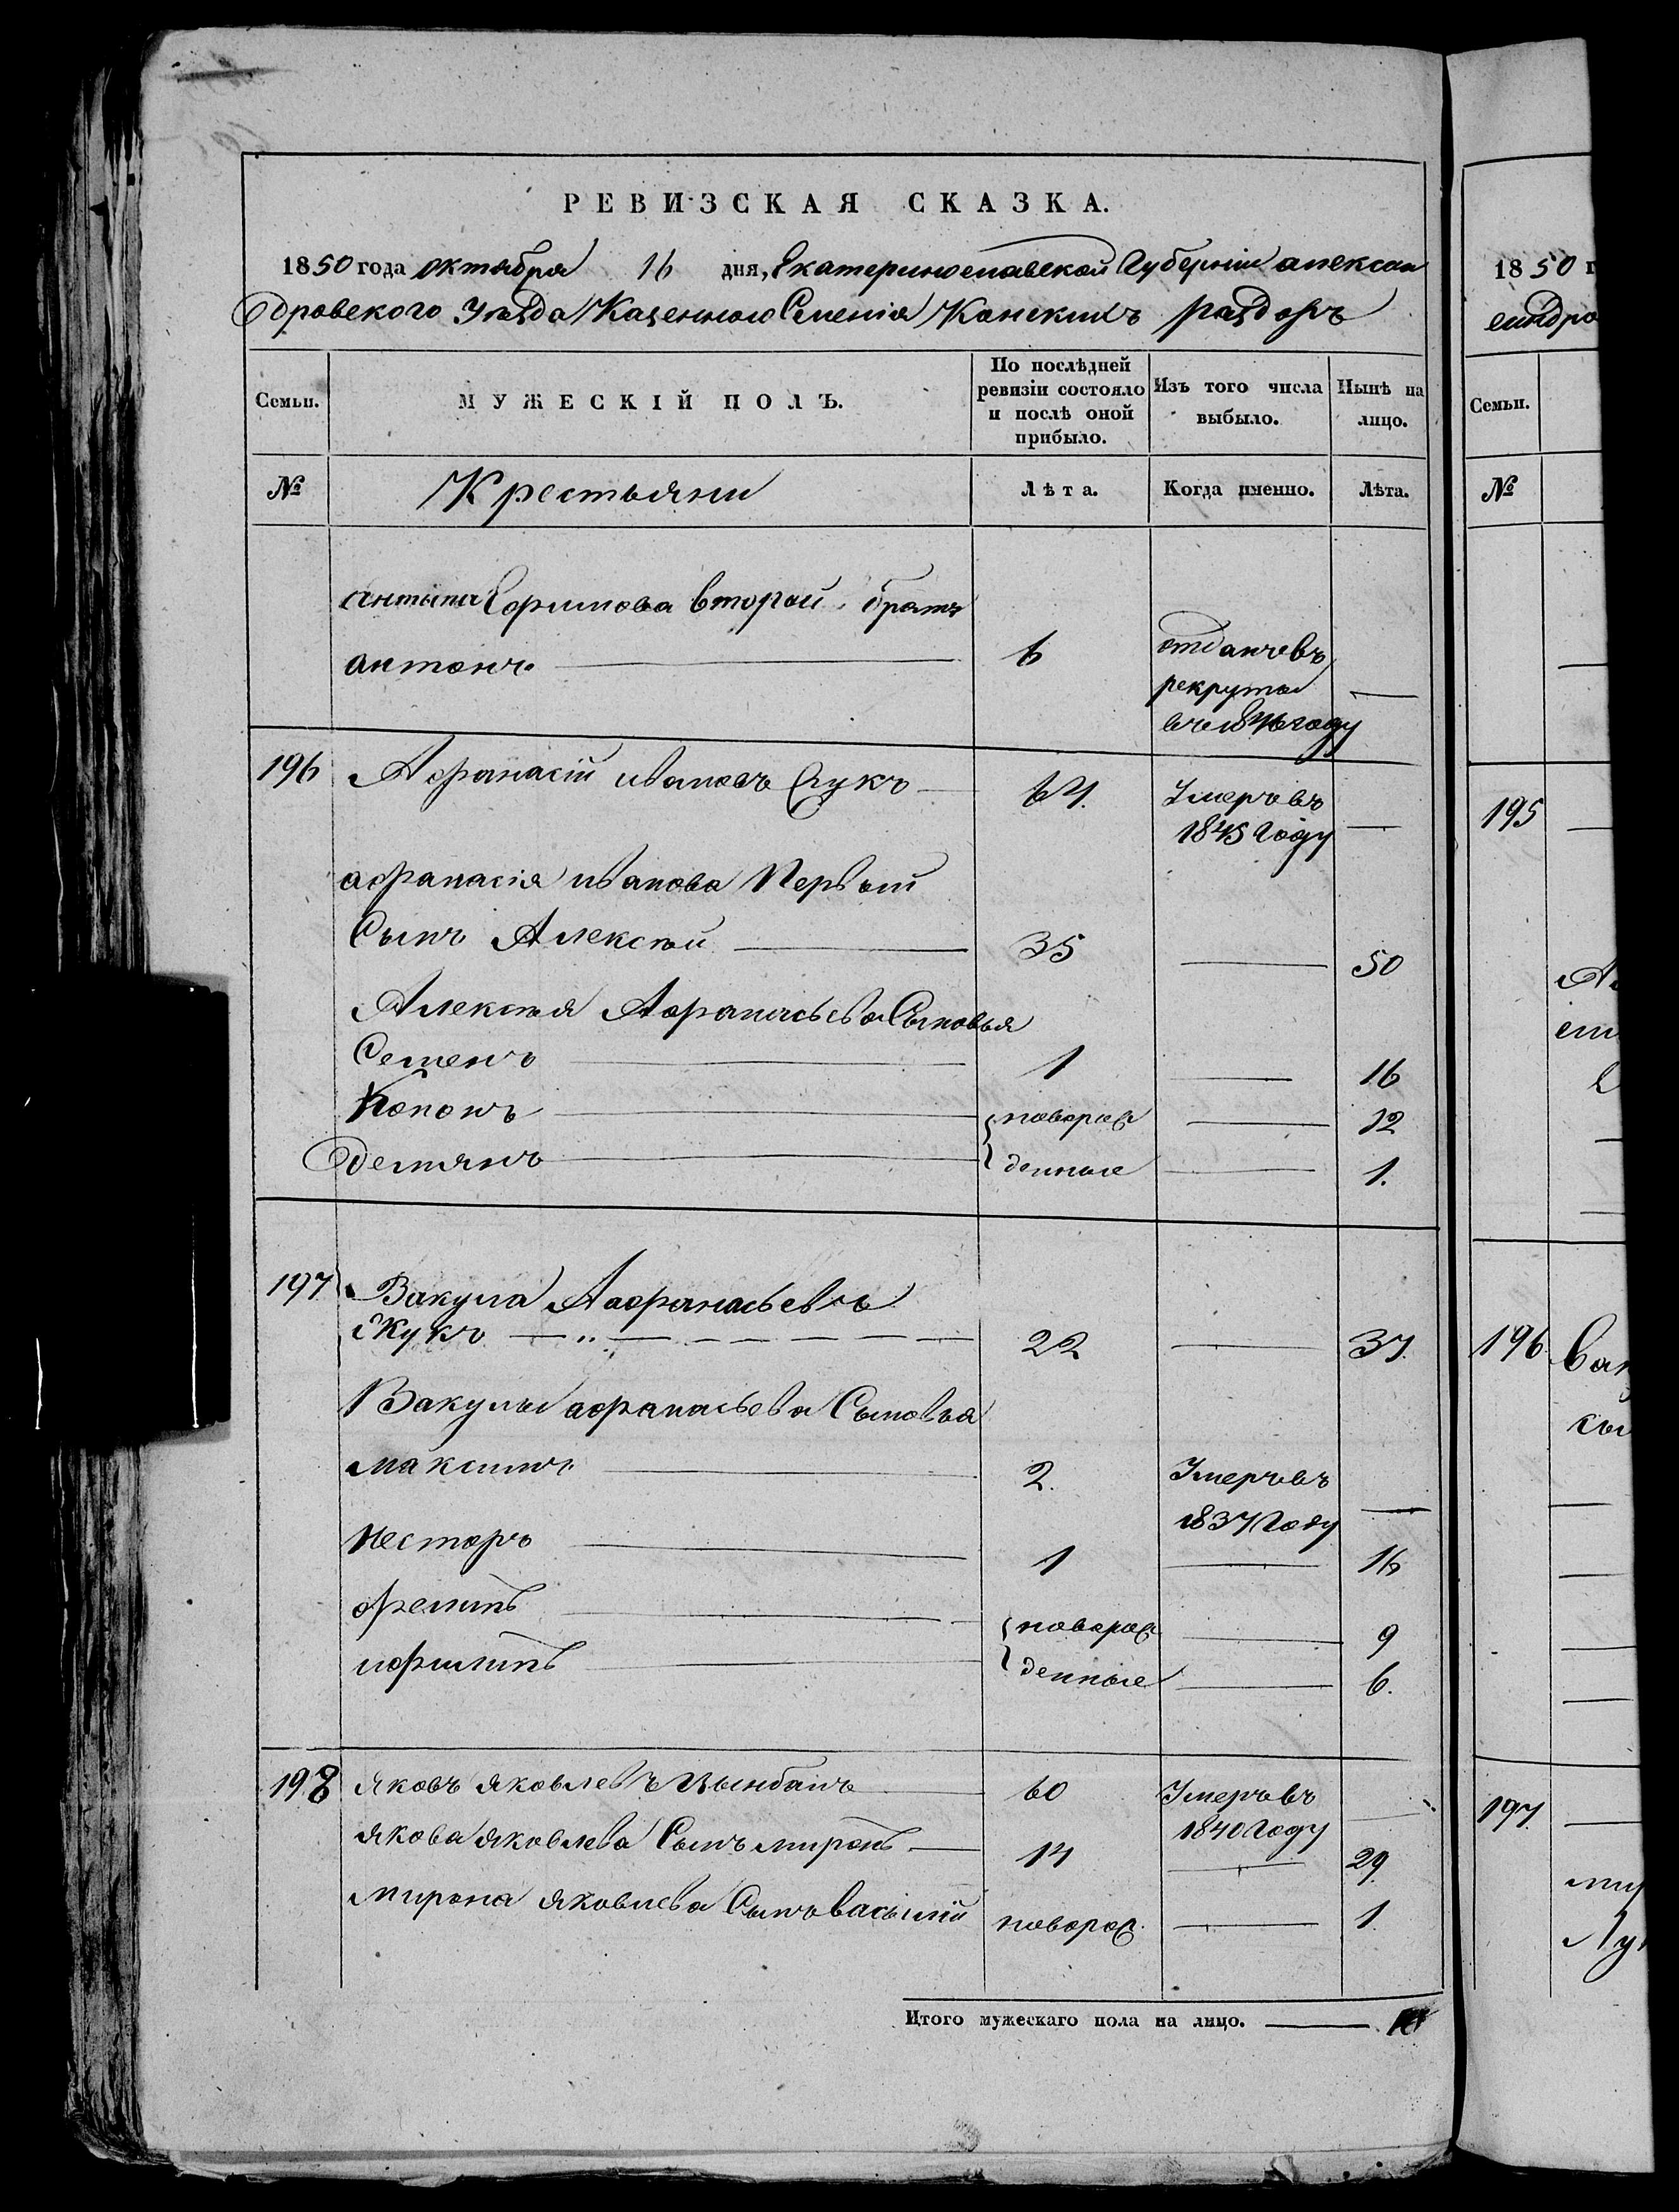 РЕВИЗСКАЯ СКАЗКА.
1850 года октября 16 дня, Екатеринославской Губернии алексан
дровского Уезда Казенного Селения Конских раздоръ
Семьи. МУЖЕСКІЙ ПОЛЪ. По послѣдней ревизіи состояло и послѣ оной прибыло. Изъ того числа выбыло. Нынѣ на лицо.
№ Крестьяни Лѣта. Когда именно. Лѣта.
антипа Ефимова второй братъ
антонъ 6 отданъ въ
рекруты
въ году
196 Афанасій ивановъ Жукъ 64. Умеръ въ
1845 году
афанасія иванова Первый
Сынъ Алексѣй 35 50
Алексѣя Афанасьева Сыновья
Семенъ 1 16
Кононъ новорож 12
демянъ денные 1.
197 Вакула Афанасьевъ
Жукъ 22 37.
Вакулы афанасьева Сыновья
максимъ 2. Умеръ въ
1837 году
несторъ 1 16
новорож 9
денные 6.
198 яковъ яковлевъ 60 Умеръ въ
1840 году
якова яковлева Сынъ миронъ 14 29
мирона яковлева Сынъ василій новорож. 1.
Итого мужескаго пола на лицо.
1850 г
Семьи.
№
195
196
197.